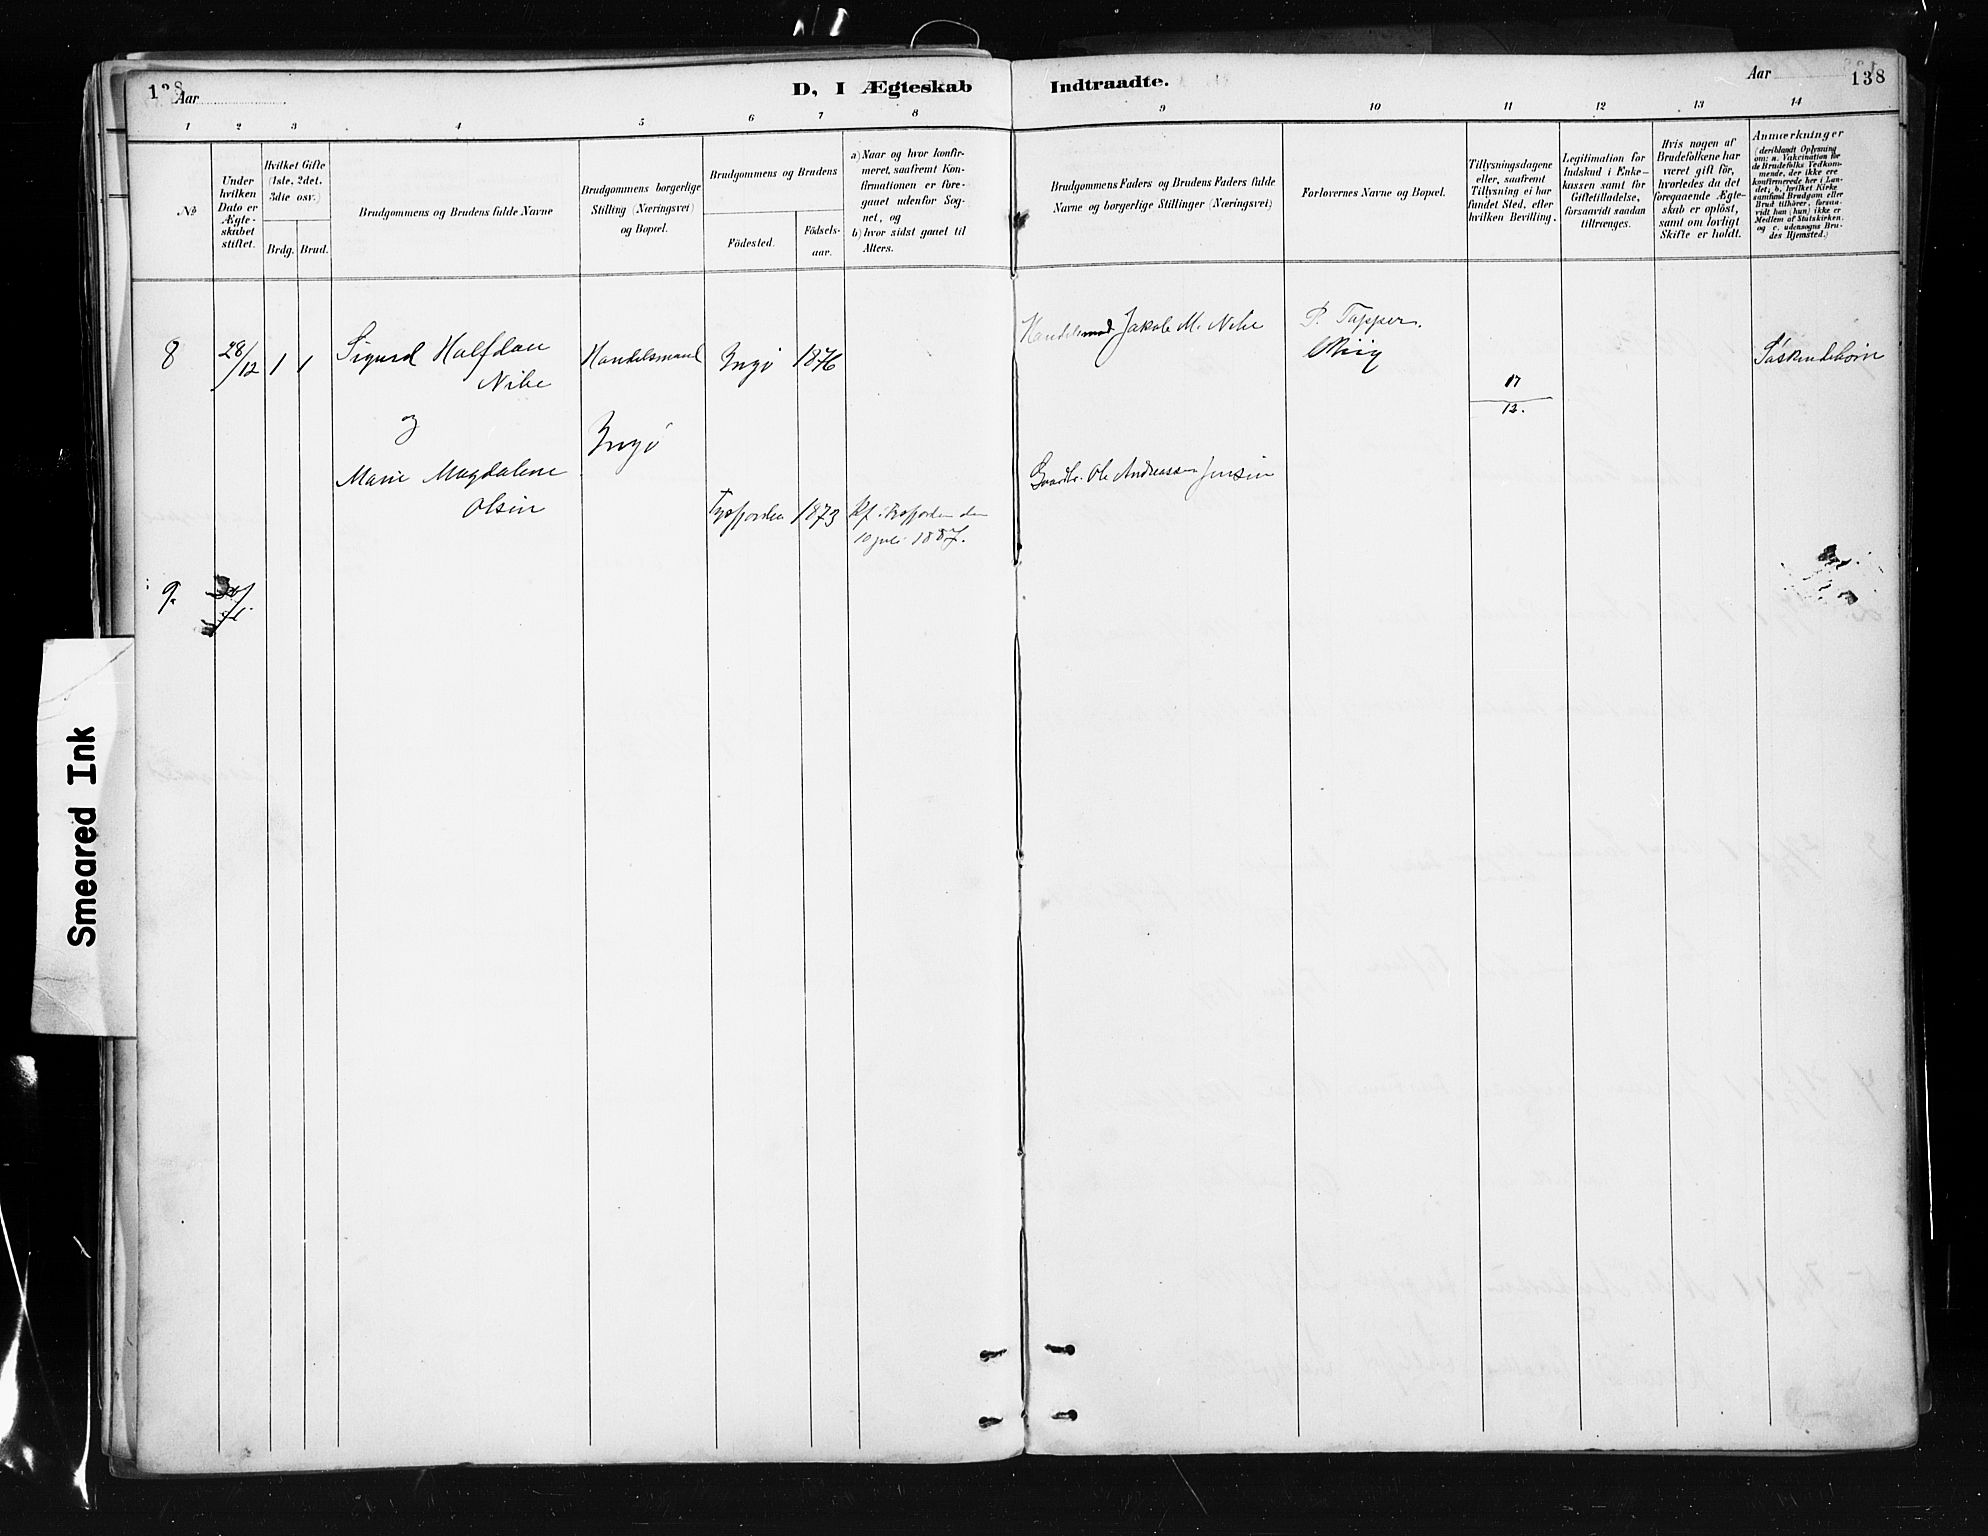 138
Aar
D, I Ægteskab
Indtraadte.
Aar
138
1 2 3 4 5 6 7 8 9 10 11 12 13 14
No
Under hvilken Dato er Ægteskabet stiftet.
Hvilket Gifte (1ste, 2det, 3die osv.)
Brdg. Brud.
Brudgommens og Brudens fulde Navne
Brudgommens borgerlige Stilling (Næringsvei) og Bopæl.
Brudgommens og Brudens
Födested.
Födsels-aar.
a) Naar og hvor konfirmeret, saafremt Konfirmationen er foregaaet udenfor Sognet, og
b) hvor sidst gaaet til Alters.
Brudgommens Faders og Brudens Faders fulde Navne og borgerlige Stillinger (Næringsvei)
Forlovernes Navne og Bopæl.
Tillysningsdagene eller, saafremt Tillysning ei har fundet Sted, efter hvilken Bevilling.
Legitimation for Indskud i Enkekassen samt for Giftetilladelse, forsaavidt saadan tiltrænges.
Hvis nogen af Brudefolkene har været gift för, hvorledes da det foregaaende Ægteskab er oplöst, samt om lovligt Skifte er holdt.
Anmærkninger
(deriblandt Oplysning om: a. Vakcination for de Brudefolks Vedkommende, der ikke ere konfirmerede her i Landet, b. hvilket Kirkesamfund Brudgom eller Brud tilhörer, forsaavidt han (hun) ikke er Medlem af Statskirken, og c. udensogns Brudes Hjemsted.)
8
28/12
1 1
Sigurd Halfdan
Nibe
Handelsmand
Ingö
1876
Handelsmand Jakob M. Nibe
P. Tapper.
Söskendebörn
17/12.
og
Ingö
Marie Magdalene
Olsen
Tysfjorden
1873
Kf. i Tysfjorden den
10 juli 1887.
Gaardbr. Ole Andreassen Jensen
9.
Smeared Ink